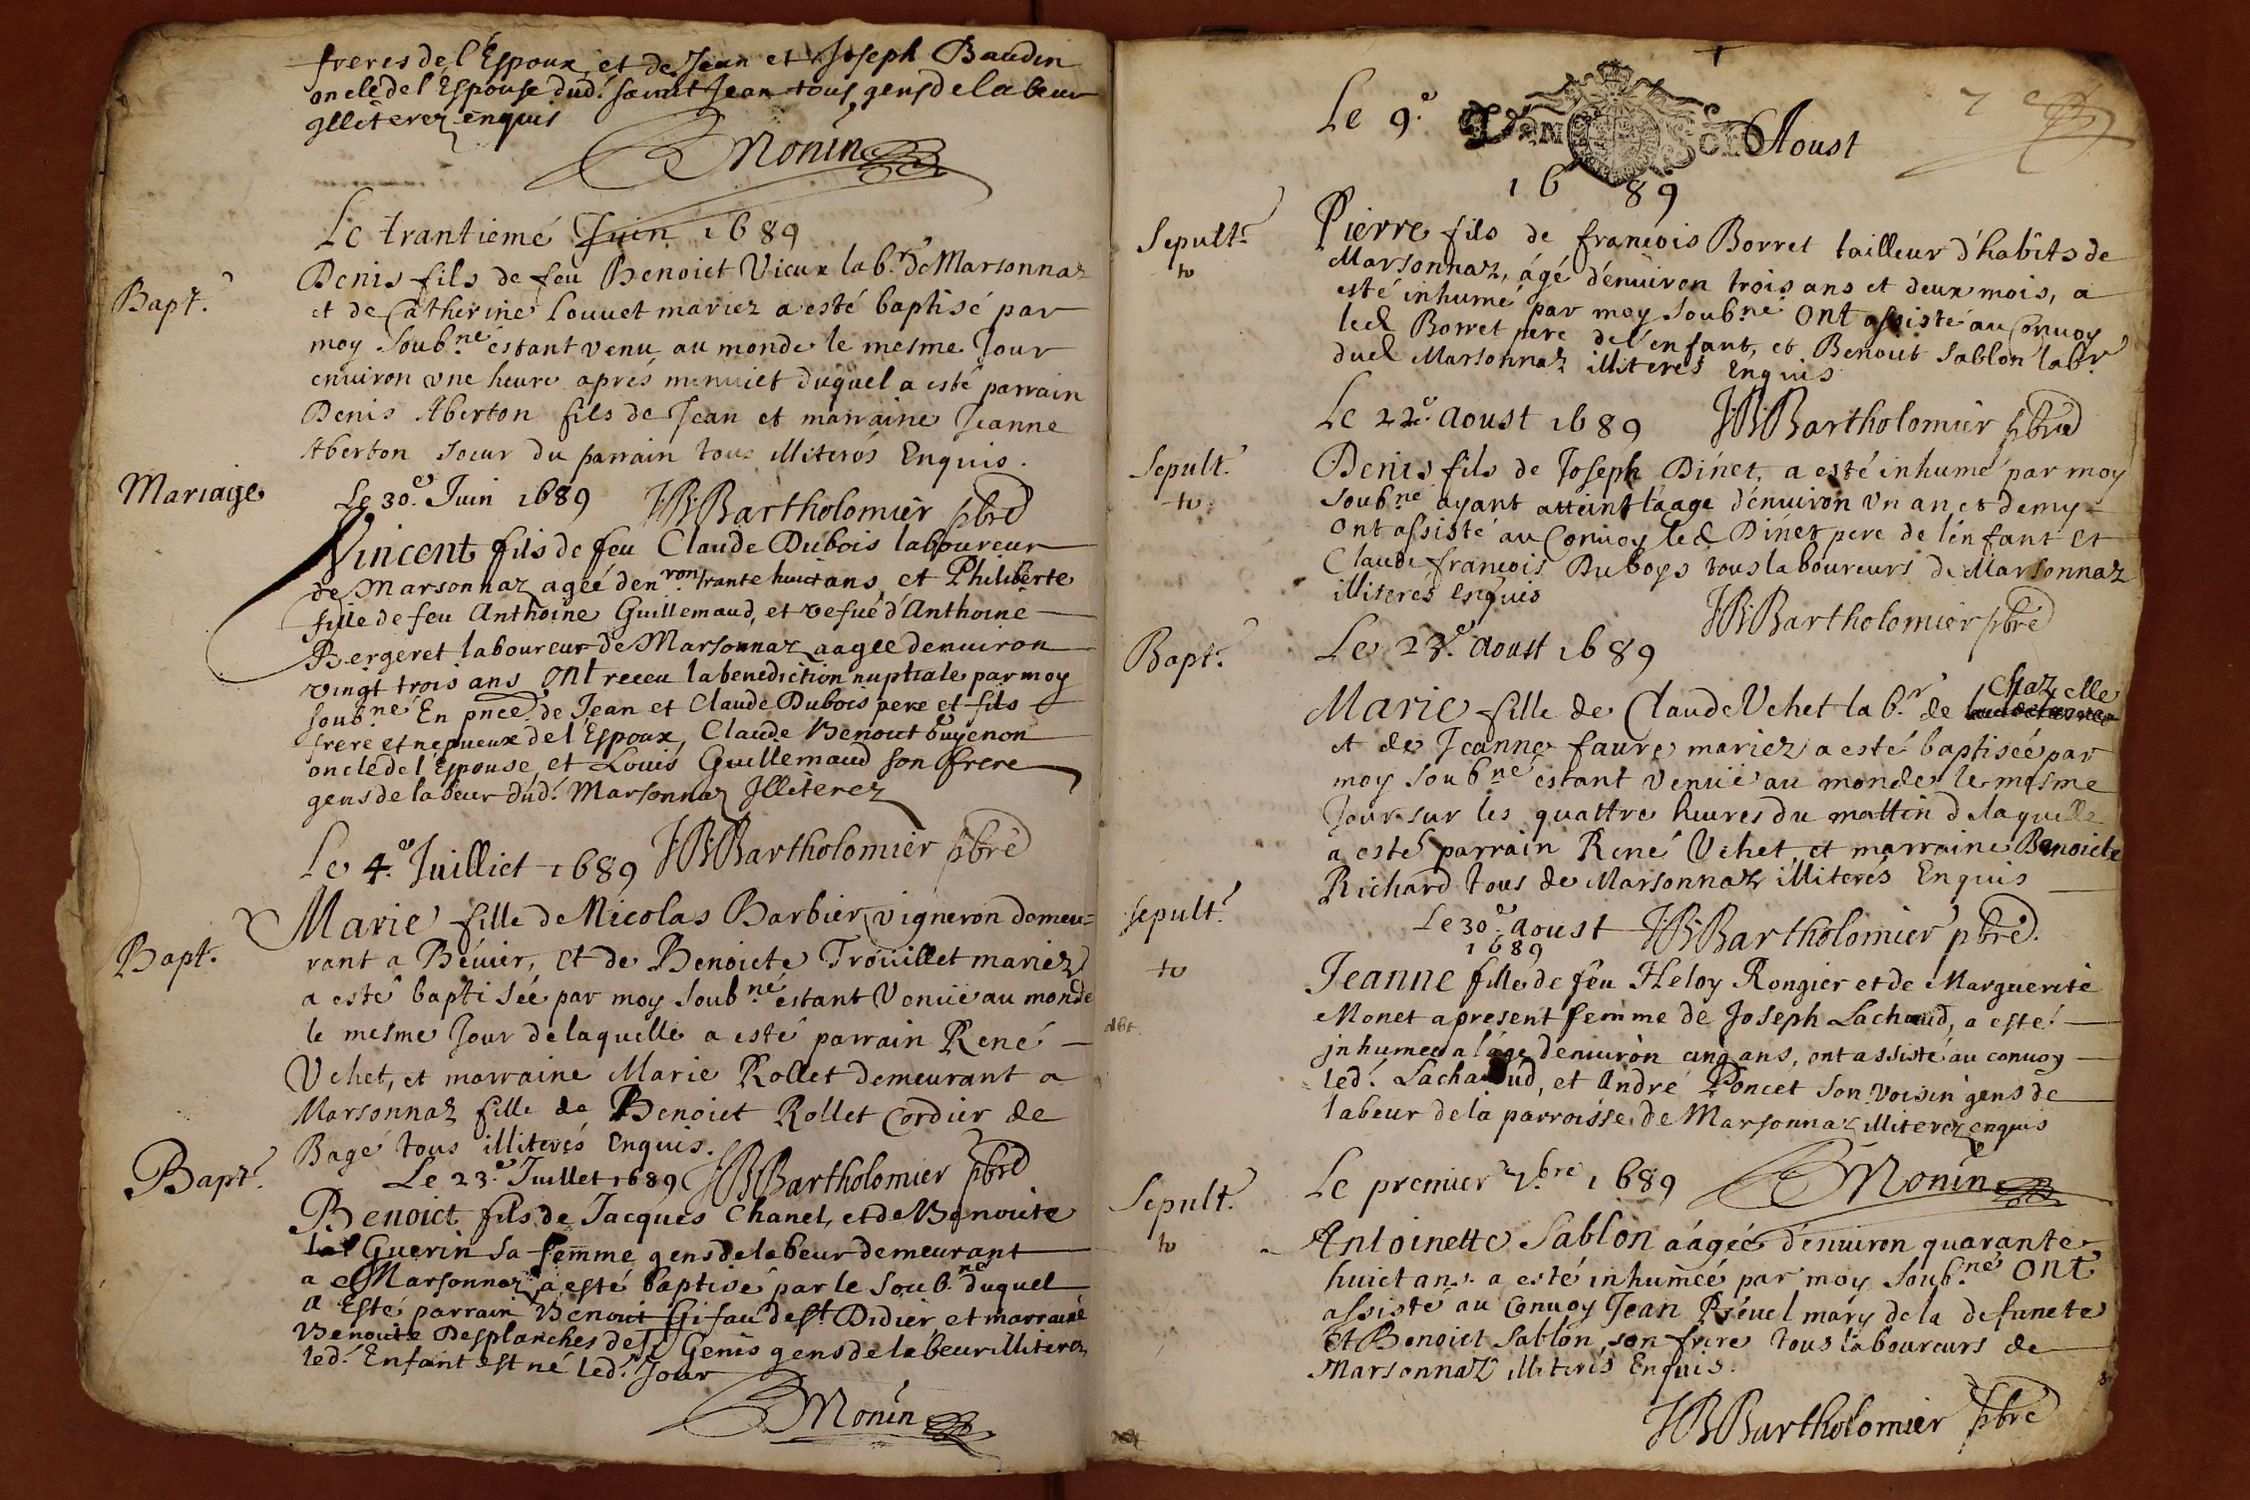 freres de l'Espoux et de Jean et Joseph Baudin
oncle de l'Espouse dud.t saint Jean tous gens de labeur
Jlliterez enquis
Monin
Le trantiemé Juin 1689
Bapt.
Denis fils de feu Benoict Vieux lab.r de Marsonnaz
et de Catherine Louuet mariez a esté baptisé par
moy soub.né estant venu au monde le mesme Jour
enuiron vne heure aprés minuict duquel a esté parrain
Denis Aberton fils de Jean et marraine Jeanne
Aberton soeur du parrain tous illiterés Enquis.
Mariage
Le 30.e Juin 1689 JBBartholomier pbré
Vincent fils de feu Claude Dubois laboureur
de Marsonnaz ageé den.ron trante huict ans, et Philiberte
fille de feu Anthoine Guillemaud, et vefué d'Anthoine
Bergeret laboureur de Marsonnaz aagee denuiron
vingt trois ans ont receu la benediction nuptiale par moy
soub.né En pnce de Jean et Claude Dubois pere et fils
frere et nepueux de l'Espoux, Claude Benoit buyenon
oncle de l'Espouse et Louis Guillemaud son frere
gens de labeur dud.t Marsonnaz Jlliterez
Le 4.e Juilliet 1689 JBBartholomier pbré
Bapt.
Marie fille de Nicolas Barbier vigneron demeu=
rant a Béuier, et de Benoicte Trouillet mariez
a esté baptisée par moy soub.né estant venuë au monde
le mesme Jour de laquelle a esté parrain René
Vehet, et marraine Marie Rollet demeurant a
Marsonnaz fille de Benoict Rollet Cordier de
Bagé tous illiterés Enquis.
Bapt.
Le 23.e Juillet 1689 JBBartholomier pbré
Benoict fils de Jacques Chanel, et de Benoite
Guerin sa femme gens de labeur demeurant
a Marsonnaz a esté baptisé par le soub.né duquel
a Esté parrain Benoit Gifau de s.t Didier et marraine
Benoite Desplanches de s.t Genis gens de labeur illiterez
led.t Enfant est né led.t Jour
Monin
Le 9.e Aoust
1689
Sepult.
Pierre fils de francois Borret tailleur d'habits de
Marsonnaz, ágé d'enuiron trois ans et deux mois, a
esté inhumé par moy soub.né ont assisté au Conuoy
led Borret pere de l'enfant, et Benoit Sablon lab.r
dud Marsonnaz illiterés Enquis
Le 22.e Aoust 1689 JBBartholomier pbré
Sepult.
Denis fils de Joseph Dinet, a esté inhumé par moy
soub.né ayant atteint láage d'enuiron vn an et demy
ont assisté au Conuoy led Dinet pere de l'enfant et
Claude francois Duboys tous laboureurs de Marsonnaz
illiterés Enquis
JBBartholomier pbré
Bapt.
Le 23.e Aoust 1689
Chazelle
Marie fille de Claude Vehet lab.r de
et de Jeanne faure mariez a esté baptisée par
moy soub.né estant venuë au monde le mesme
Jour sur les quattre heures du mattin de laquelle
a esté parrain René Vehet et marraine Benoicte
Richard tous de Marsonnaz illiterés Enquis
Sepult.
Le 30.e Aoust JBBartholomier pbré.
1689
Jeanne fille de feu Heloy Rongier et de Marguerite
Monet apresent femme de Joseph Lachaud, a esté
jnhumee a láge denuiron cinq ans, ont assisté au conuoy
led.t Lachaud, et André Poncet son voisin gens de
labeur de la parroisse de Marsonnaz illiterez enquis
Le premier 7.bre 1689 Monin
Sepult.
Antoinette Sablon aágée d'enuiron quarante
huict ans a esté inhumeé par moy soub.né ont
assisté au Conuoy Jean Réuel mary de la defuncte
Et Benoict Sablon son frere tous laboureurs de
Marsonnaz illiterés Enquis.
JBBartholomier pbré